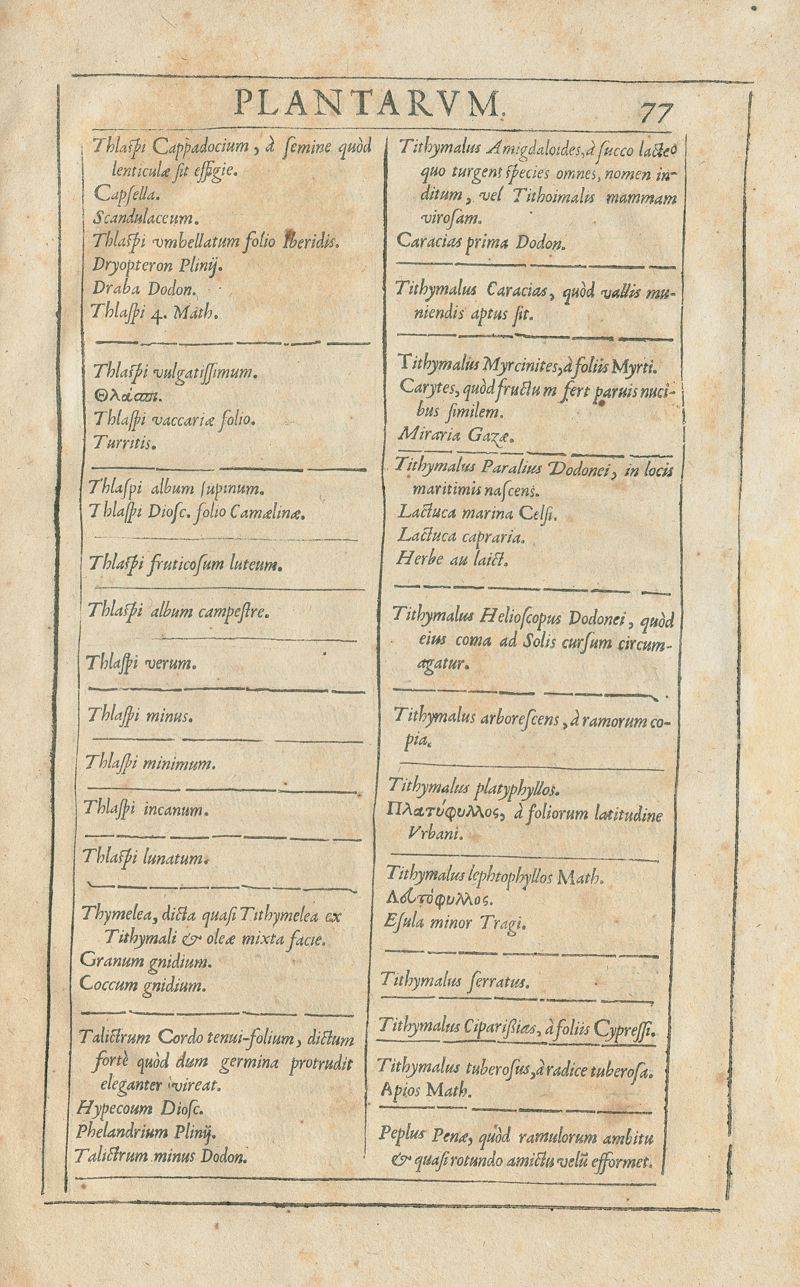 PLANTARVM. 77
Thlaſpi Cappadocium, à ſemine quòd
lenticulæ ſit effigie.
Capſella.
Scandulaceum.
Thlaſpi vmbellatum folio Iberidis.
Dryopteron Plinij.
Draba Dodon.
Thlaſpi 4. Math.
Thlaſpi vulgatiſſimum.
Θλάσπι.
Thlaſpi vaccariæ folio.
Turritis.
Thlaſpi album ſupinum.
Thlaſpi Dioſc. folio Camælinæ.
Thlaſpi fruticoſum luteum.
Thlaſpi album campeſtre.
Thlaſpi verum.
Thlaſpi minus.
Thlaſpi minimum.
Thlaſpi incanum.
Thlaſpi lunatum.
Thymelea, dicta quaſi Tithymelea ex
Tithymali & oleæ mixta facie.
Granum gnidium.
Coccum gnidium.
Talictrum Cordo tenui-folium, dictum
fortè quòd dum germina protrudit
eleganter vireat.
Hypecoum Dioſc.
Phelandrium Plinij.
Talictrum minus Dodon.
Tithymalus Amigdaloides, à ſucco lacteo
quo turgent ſpecies omnes, nomen in-
ditum, vel Tithoimalis mammam
viroſam.
Caracias prima Dodon.
Tithymalus Caracias, quòd vallis mu-
niendis aptus ſit.
Tithymalus Myrcinites, à foliis Myrti.
Carytes, quòd fructum fert paruis nuci-
bus ſimilem.
Miraria Gazæ.
Tithymalus Paralius Dodonei, in locis
maritimis naſcens.
Lactuca marina Celſi.
Lactuca capraria.
Herbe au laict.
Tithymalus Helioſcopus Dodonei, quòd
eius coma ad Solis curſum circum-
agatur.
Tithymalus arboreſcens, à ramorum co-
pia.
Tithymalus platyphyllos.
Πλατύφυλλος, à foliorum latitudine
Vrbani.
Tithymalus lephtophyllos Math.
Λεπτόφυλλος.
Eſula minor Tragi.
Tithymalus ſerratus.
Tithymalus Cipariſsias, à foliis Cypreſſi.
Tithymalus tuberoſus, à radice tuberoſa.
Apios Math.
Peplus Penæ, quòd ramulorum ambitu
& quaſi rotundo amictu velũ efformet.